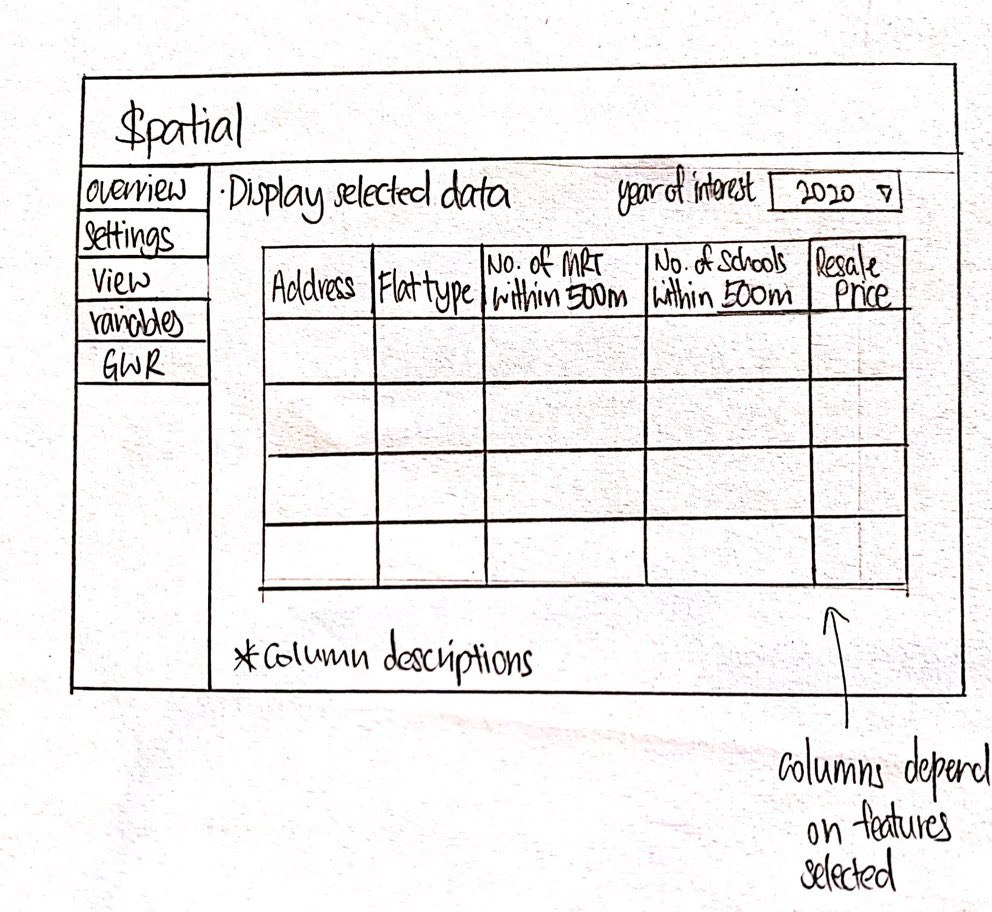 $patial
overview
Settings
View
variables
GWR
·Display selected data
year of interest
2020 ▽
Address
Flat type
No. of MRT
within 500m
No. of Schools
within 500m
Resale
Price
*Column descriptions
columns depend
on features
selected